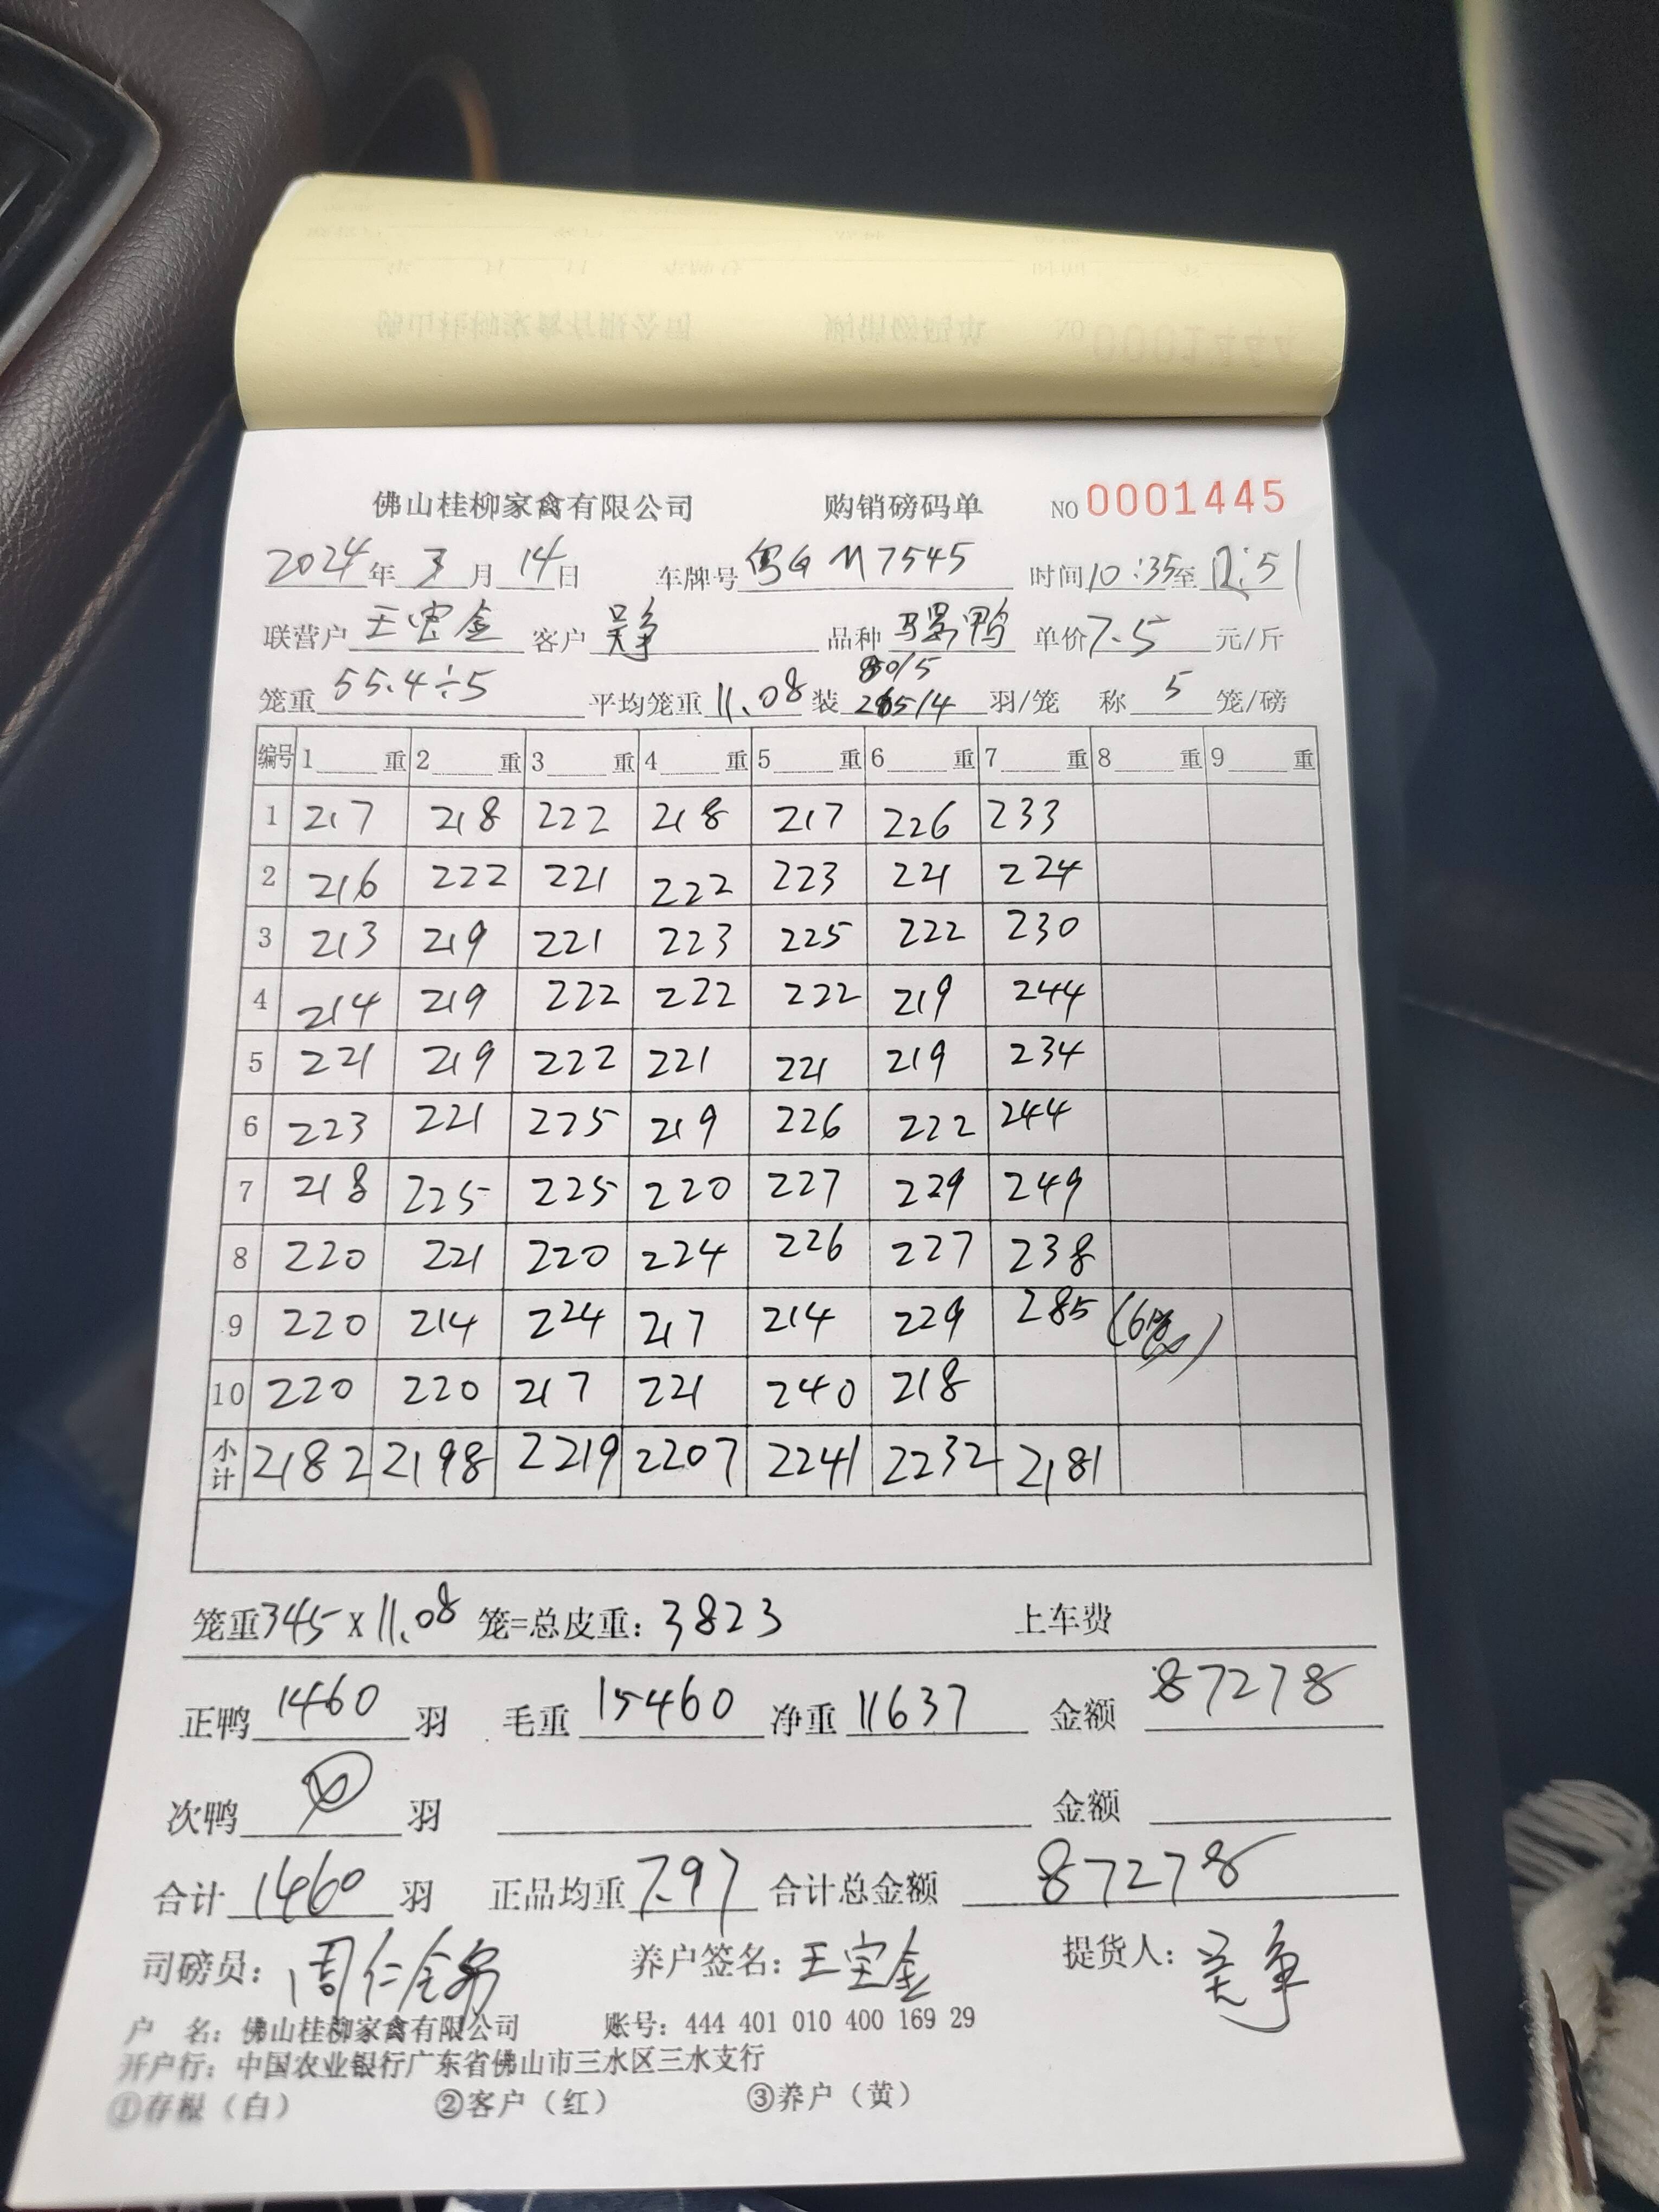 佛山桂柳家禽有限公司 购销磅码单 NO 0001445
2024年 3月 14日 车牌号 粤G M7545 时间 10:35至 12:51
联营户 王宝金 客户 吴争 品种 鸭 单价 7.5 元/斤
80/5
笼重 55.4÷5 平均笼重 11.08 装 265/4 羽/笼 称 5 笼/磅
编号 1 重 2 重 3 重 4 重 5 重 6 重 7 重 8 重 9 重
1 217 218 222 218 217 226 233
2 216 222 221 222 223 221 224
3 213 219 221 223 225 222 230
4 214 219 222 222 222 219 244
5 221 219 222 221 221 219 234
6 223 221 225 219 226 222 244
7 218 225 225 220 227 229 249
8 220 221 220 224 226 227 238
9 220 214 224 217 214 229 285 (6笼)
10 220 220 217 221 240 218
小计 2182 2198 2219 2207 2241 2232 2181
笼重 345 x 11.08 笼=总皮重: 3823 上车费
正鸭 1460 羽 毛重 15460 净重 11637 金额 87278
次鸭 羽 金额
合计 1460 羽 正品均重 7.97 合计总金额 87278
司磅员: 养户签名: 王宝金 提货人: 吴争
户 名: 佛山桂柳家禽有限公司 账号: 444 401 010 400 169 29
开户行: 中国农业银行广东省佛山市三水区三水支行
①存根（白） ②客户（红） ③养户（黄）